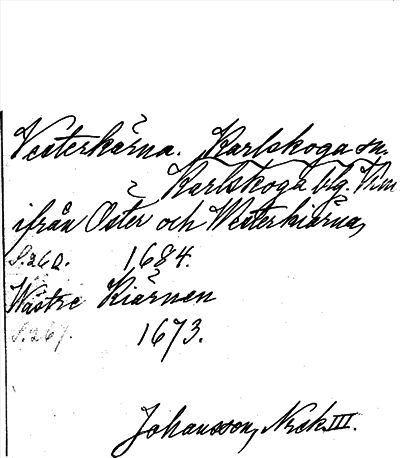 Vesterkärna. Karlskoga sn.
Karlskoga blg. Vrm
ifrån Öster och Westerkiärna,
S. 260. 1684.
Wästre Kiärnen
S. 267. 1673.
Johansson, Nsck III.